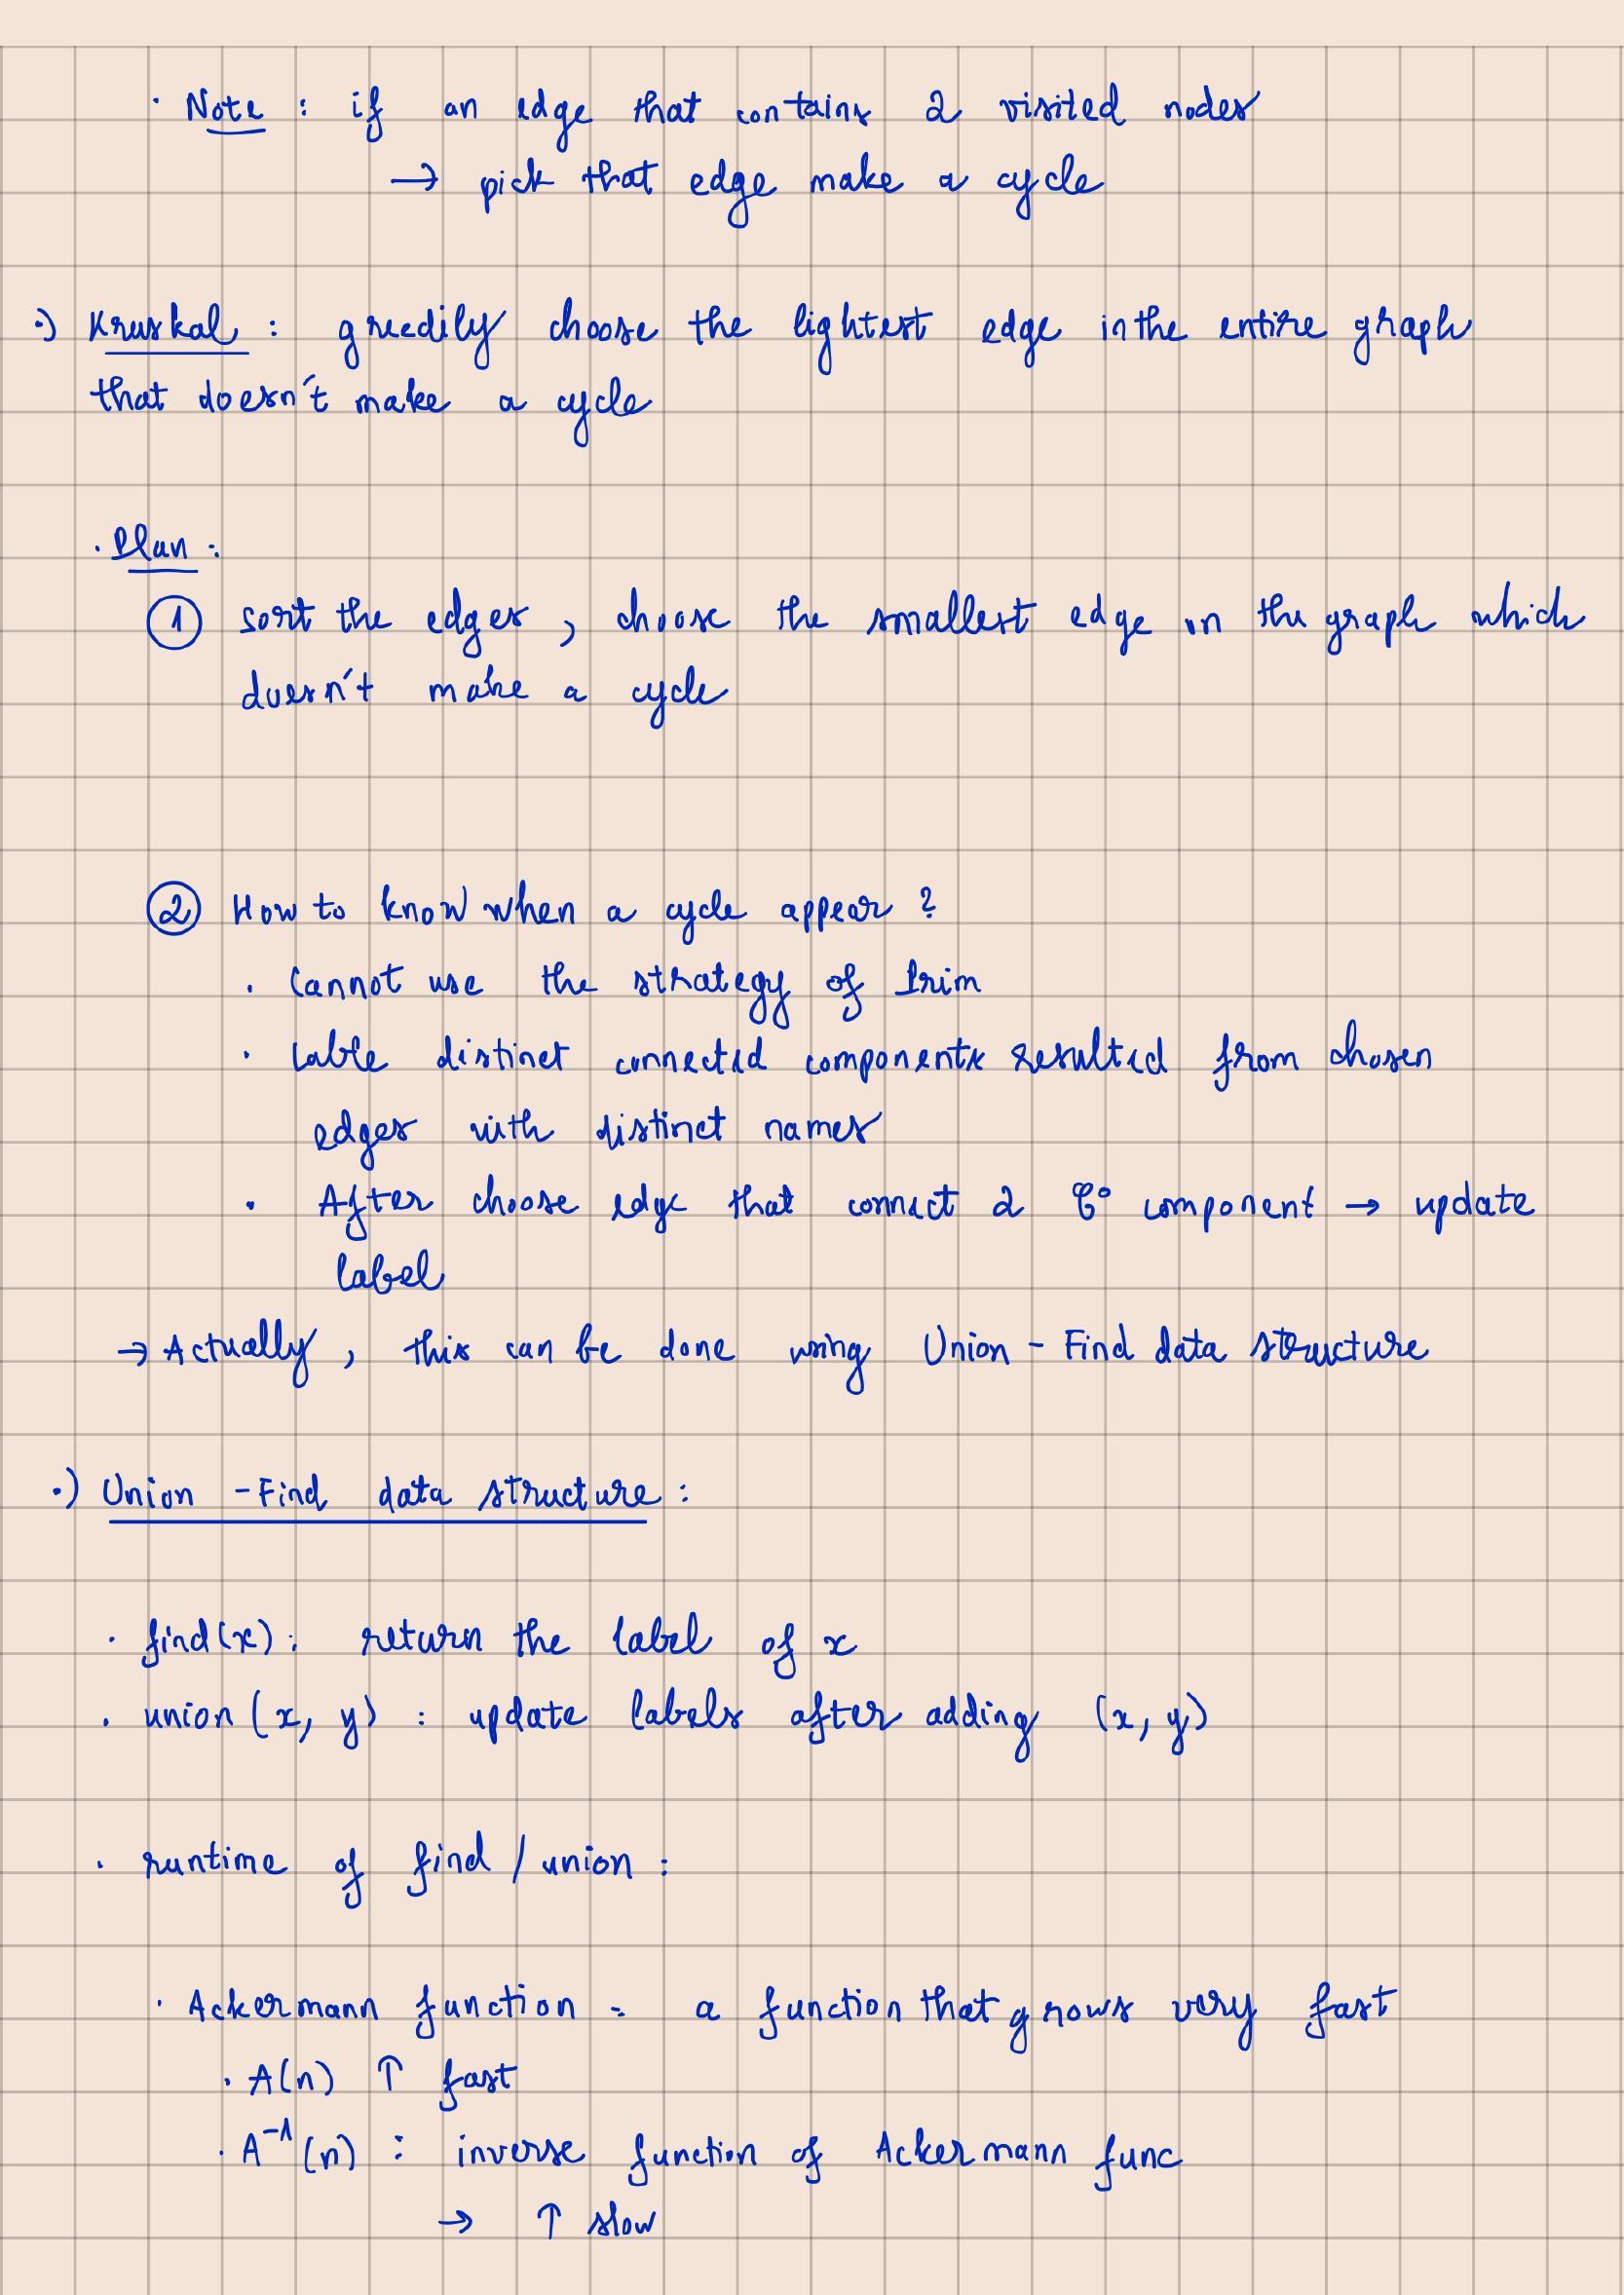 · Note : if an edge that contains 2 visited nodes
→ pick that edge make a cycle
·) Kruskal : greedily choose the lightest edge in the entire graph
that doesn't make a cycle
· Plan :
① sort the edges , choose the smallest edge in the graph which
doesn't make a cycle
② How to know when a cycle appear ?
· Cannot use the strategy of Prim
· Lable distinct connected components resulted from chosen
edges with distinct names
· After choose edge that connect 2 component → update
label
→ Actually , this can be done using Union - Find data structure
·) Union - Find data structure :
· find(x) : return the label of x
· union (x, y) : update labels after adding (x, y)
· runtime of find / union :
· Ackermann function = a function that grows very fast
· A(n) ↑ fast
· A⁻¹(n) : inverse function of Ackermann func
→ ↑ slow